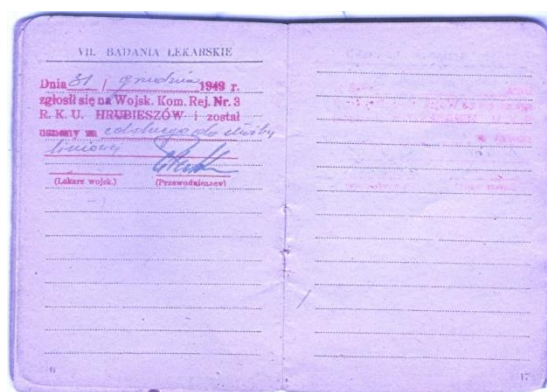 VII. BADANIA LEKARSKIE
Dnia 31 / grudnia 1949 r.
zgłosił się na Wojsk. Kom. Rej. Nr. 3
R. K. U. HRUBIESZÓW i został
uznany za zdolnego do służby
liniowej
(Lekarz wojsk.) (Przewodniczący)
6
17